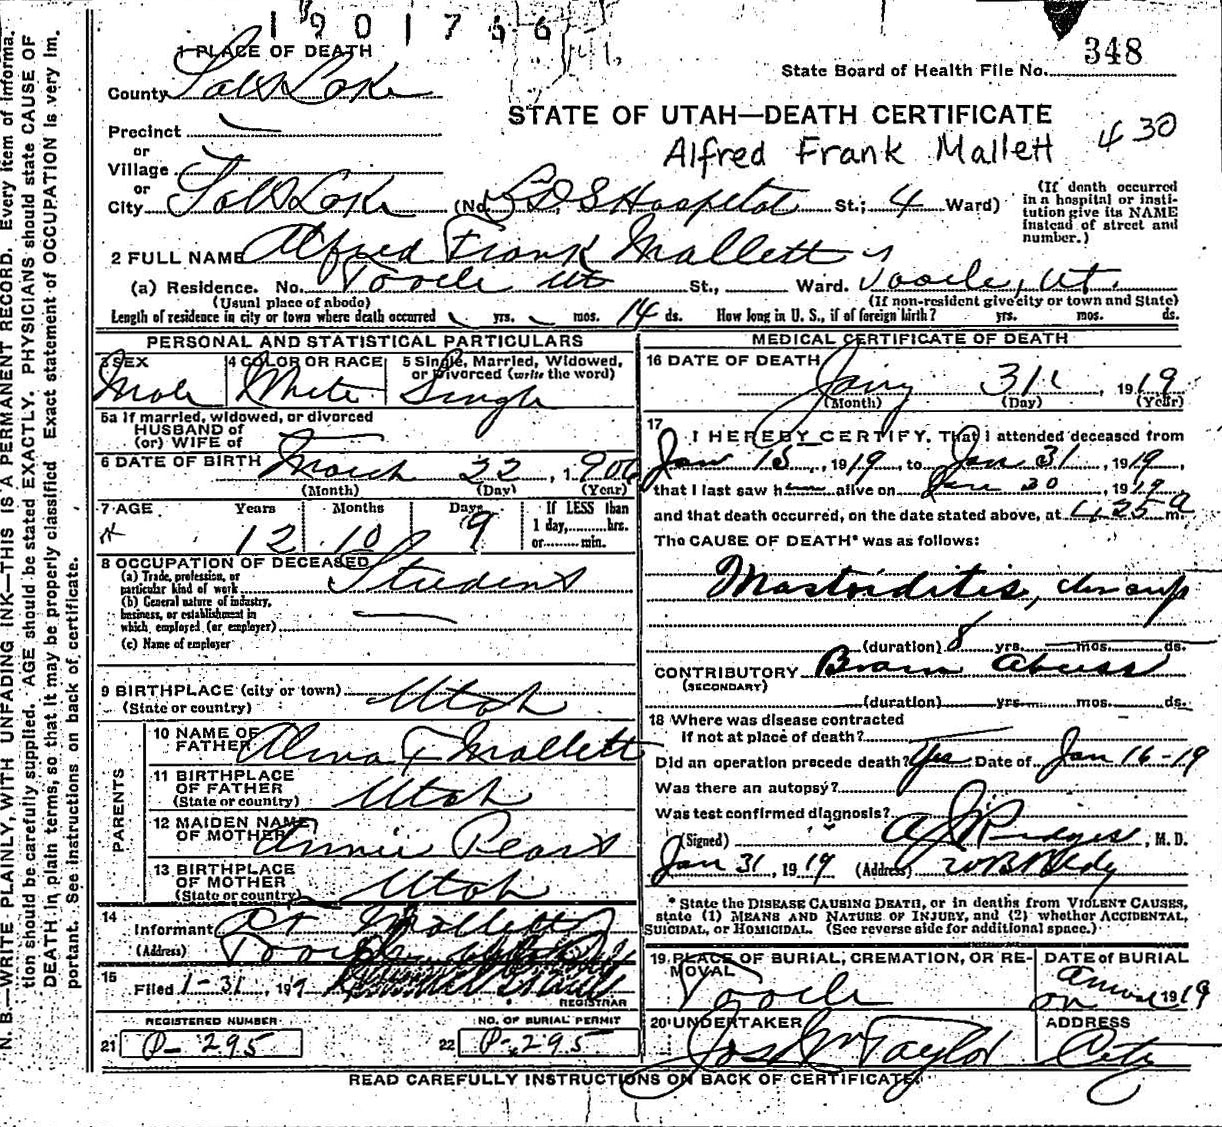 1901766
348
State Board of Health File No.
STATE OF UTAH—DEATH CERTIFICATE
Alfred Frank Mallett 430
1 PLACE OF DEATH
County Salt Lake
Precinct
or
Village
or
City Salt Lake (No. L D S Hospital St.; 4 Ward)
(If death occurred in a hospital or institution give its NAME instead of street and number.)
2 FULL NAME Alfred Frank Mallett
(a) Residence. No. Tooele Ut St., Ward. Tooele, Ut.
(Usual place of abode) (If non-resident give city or town and State)
Length of residence in city or town where death occurred yrs. mos. 14 ds. How long in U. S., if of foreign birth? yrs. mos. ds.
PERSONAL AND STATISTICAL PARTICULARS
3 SEX Male
4 COLOR OR RACE White
5 Single, Married, Widowed, or Divorced (write the word) Single
5a If married, widowed, or divorced
HUSBAND of
(or) WIFE of
6 DATE OF BIRTH March 22, 1906
(Month) (Day) (Year)
7 AGE Years Months Days If LESS than
12 10 9 1 day, hrs.
or min.
8 OCCUPATION OF DECEASED
(a) Trade, profession, or particular kind of work Student
(b) General nature of industry, business, or establishment in which employed (or employer)
(c) Name of employer
9 BIRTHPLACE (city or town) Utah
(State or country)
PARENTS
10 NAME OF FATHER Alma F Mallett
11 BIRTHPLACE OF FATHER (State or country) Utah
12 MAIDEN NAME OF MOTHER Annie
13 BIRTHPLACE OF MOTHER (State or country) Utah
14
Informant Mallett
(Address) Tooele
15
Filed 1-31, 1919
REGISTRAR
REGISTERED NUMBER
21 P-295
NO. OF BURIAL PERMIT
22 P-295
MEDICAL CERTIFICATE OF DEATH
16 DATE OF DEATH
Jany 31, 1919
(Month) (Day) (Year)
17
I HEREBY CERTIFY, That I attended deceased from
Jan 15, 1919, to Jan 31, 1919,
that I last saw him alive on Jan 30, 1919
and that death occurred, on the date stated above, at 4,25 a m.
The CAUSE OF DEATH* was as follows:
Mastoiditis, chr sup
(duration) 8 yrs. mos. ds.
CONTRIBUTORY Brain Abcess
(SECONDARY)
(duration) yrs. mos. ds.
18 Where was disease contracted
if not at place of death?
Did an operation precede death? Yes Date of Jan 16-19
Was there an autopsy?
Was test confirmed diagnosis?
(Signed) Ridges, M. D.
Jan 31, 1919 (Address)
* State the DISEASE CAUSING DEATH, or in deaths from VIOLENT CAUSES,
state (1) MEANS AND NATURE OF INJURY, and (2) whether ACCIDENTAL,
SUICIDAL, or HOMICIDAL. (See reverse side for additional space.)
19 PLACE OF BURIAL, CREMATION, OR REMOVAL
Tooele
DATE of BURIAL
1919
20 UNDERTAKER
Jos Wm Taylor
ADDRESS
City
READ CAREFULLY INSTRUCTIONS ON BACK OF CERTIFICATE.
N. B.—WRITE PLAINLY, WITH UNFADING INK—THIS IS A PERMANENT RECORD. Every item of informa-
tion should be carefully supplied. AGE should be stated EXACTLY. PHYSICIANS should state CAUSE OF
DEATH in plain terms, so that it may be properly classified. Exact statement of OCCUPATION is very im-
portant. See instructions on back of certificate.